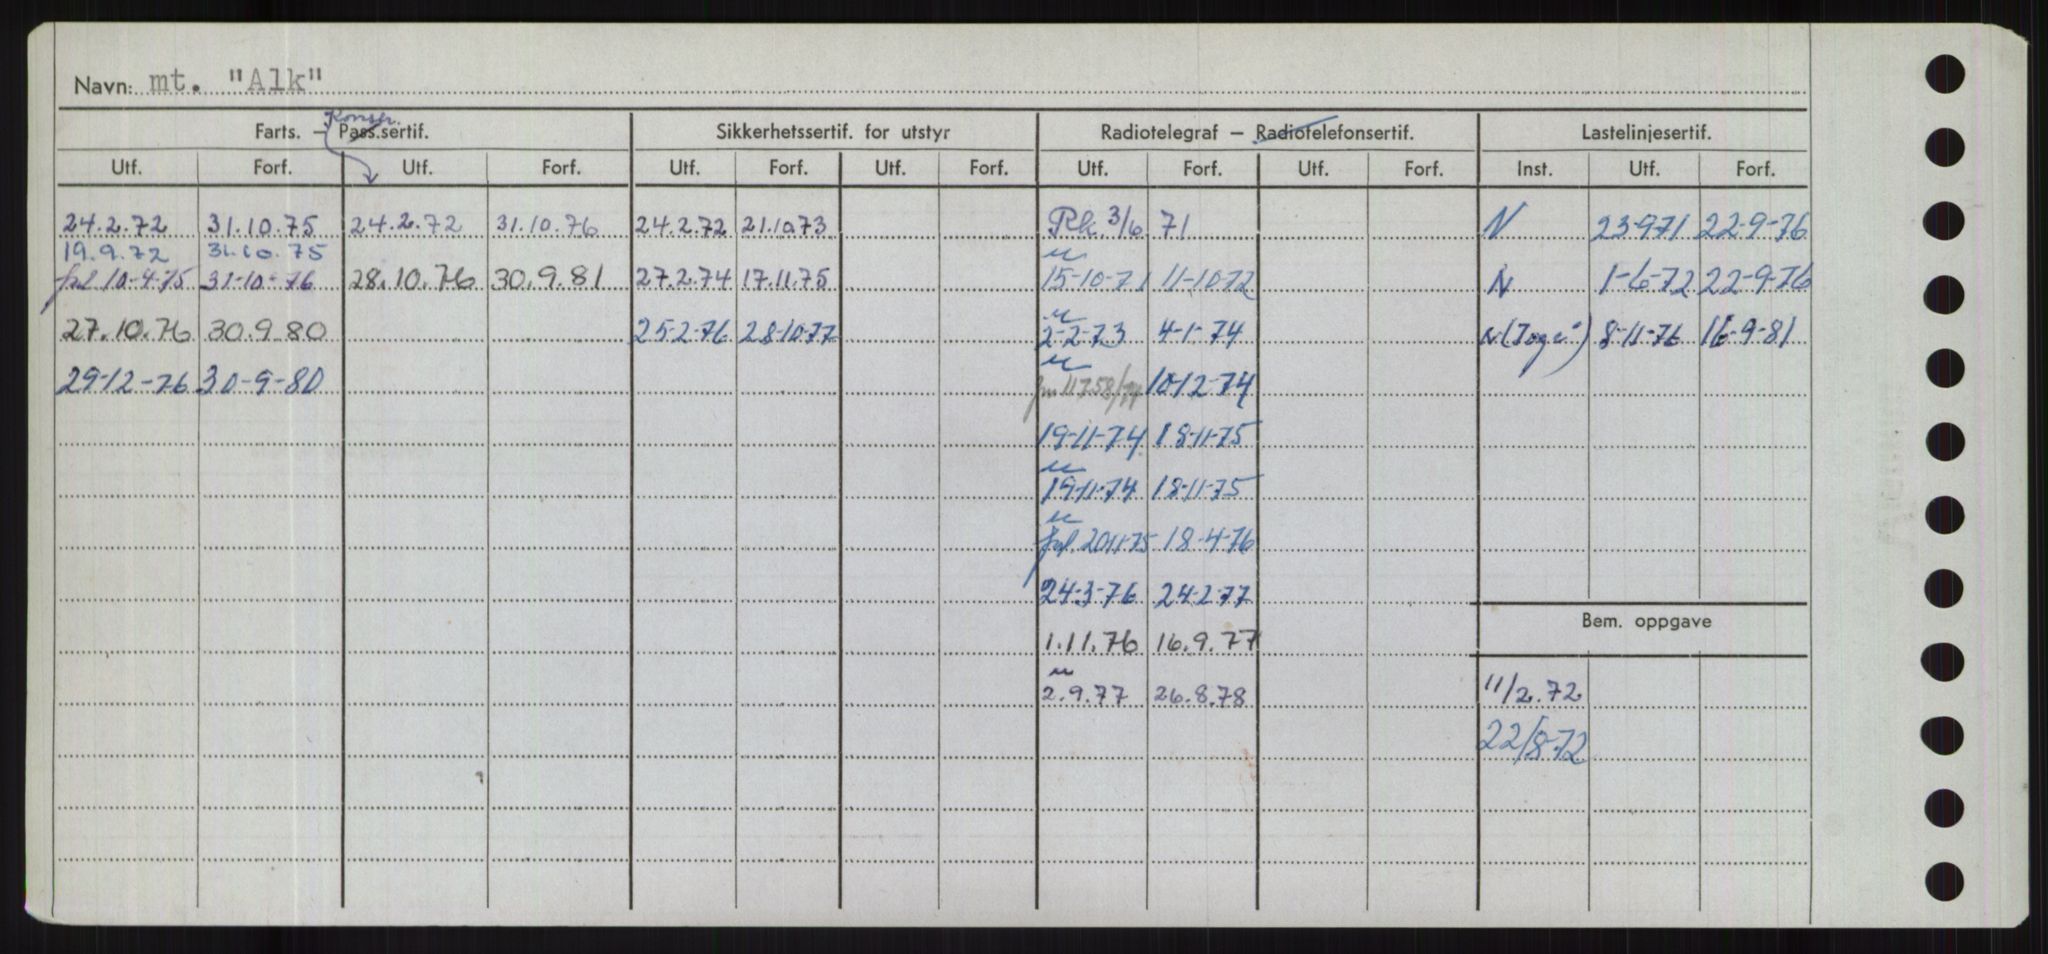 Navn: mt. "Alk"
Konstr.
Farts. – Pass.sertif. Sikkerhetssertif. for utstyr Radiotelegraf – Radiotelefonsertif. Lastelinjesertif.
Utf. Forf. Utf. Forf. Utf. Forf. Utf. Forf. Utf. Forf. Utf. Forf. Inst. Utf. Forf.
24.2.72 31.10.75 24.2.72 31.10.76 24.2.72 21.10.73 Rk. 3/6 71 N 23-9-71 22-9-76
19.9.72 31.10.75
10-4-75 31-10-76 28.10.76 30.9.81 27.2.74 17.11.75 15-10-71 11-10-72 N 1-6-72 22-9-76
27.10.76 30.9.80 25-2-76 28-10-77 2-2-73 4-1-74 N 8-11-76 16-9-81
29-12-76 30-9-80 11758/74 10-12-74
19-11-74 18-11-75
19-11-74 18-11-75
20-11-75 18-4-76
24-3-76 24-2-77
Bem. oppgave
1.11.76 16.9.77
2.9.77 26.8.78 11/2.72
22/8-72